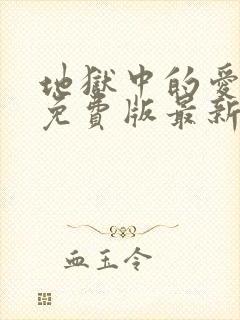 地獄中的愛
免費版最新
血玉令